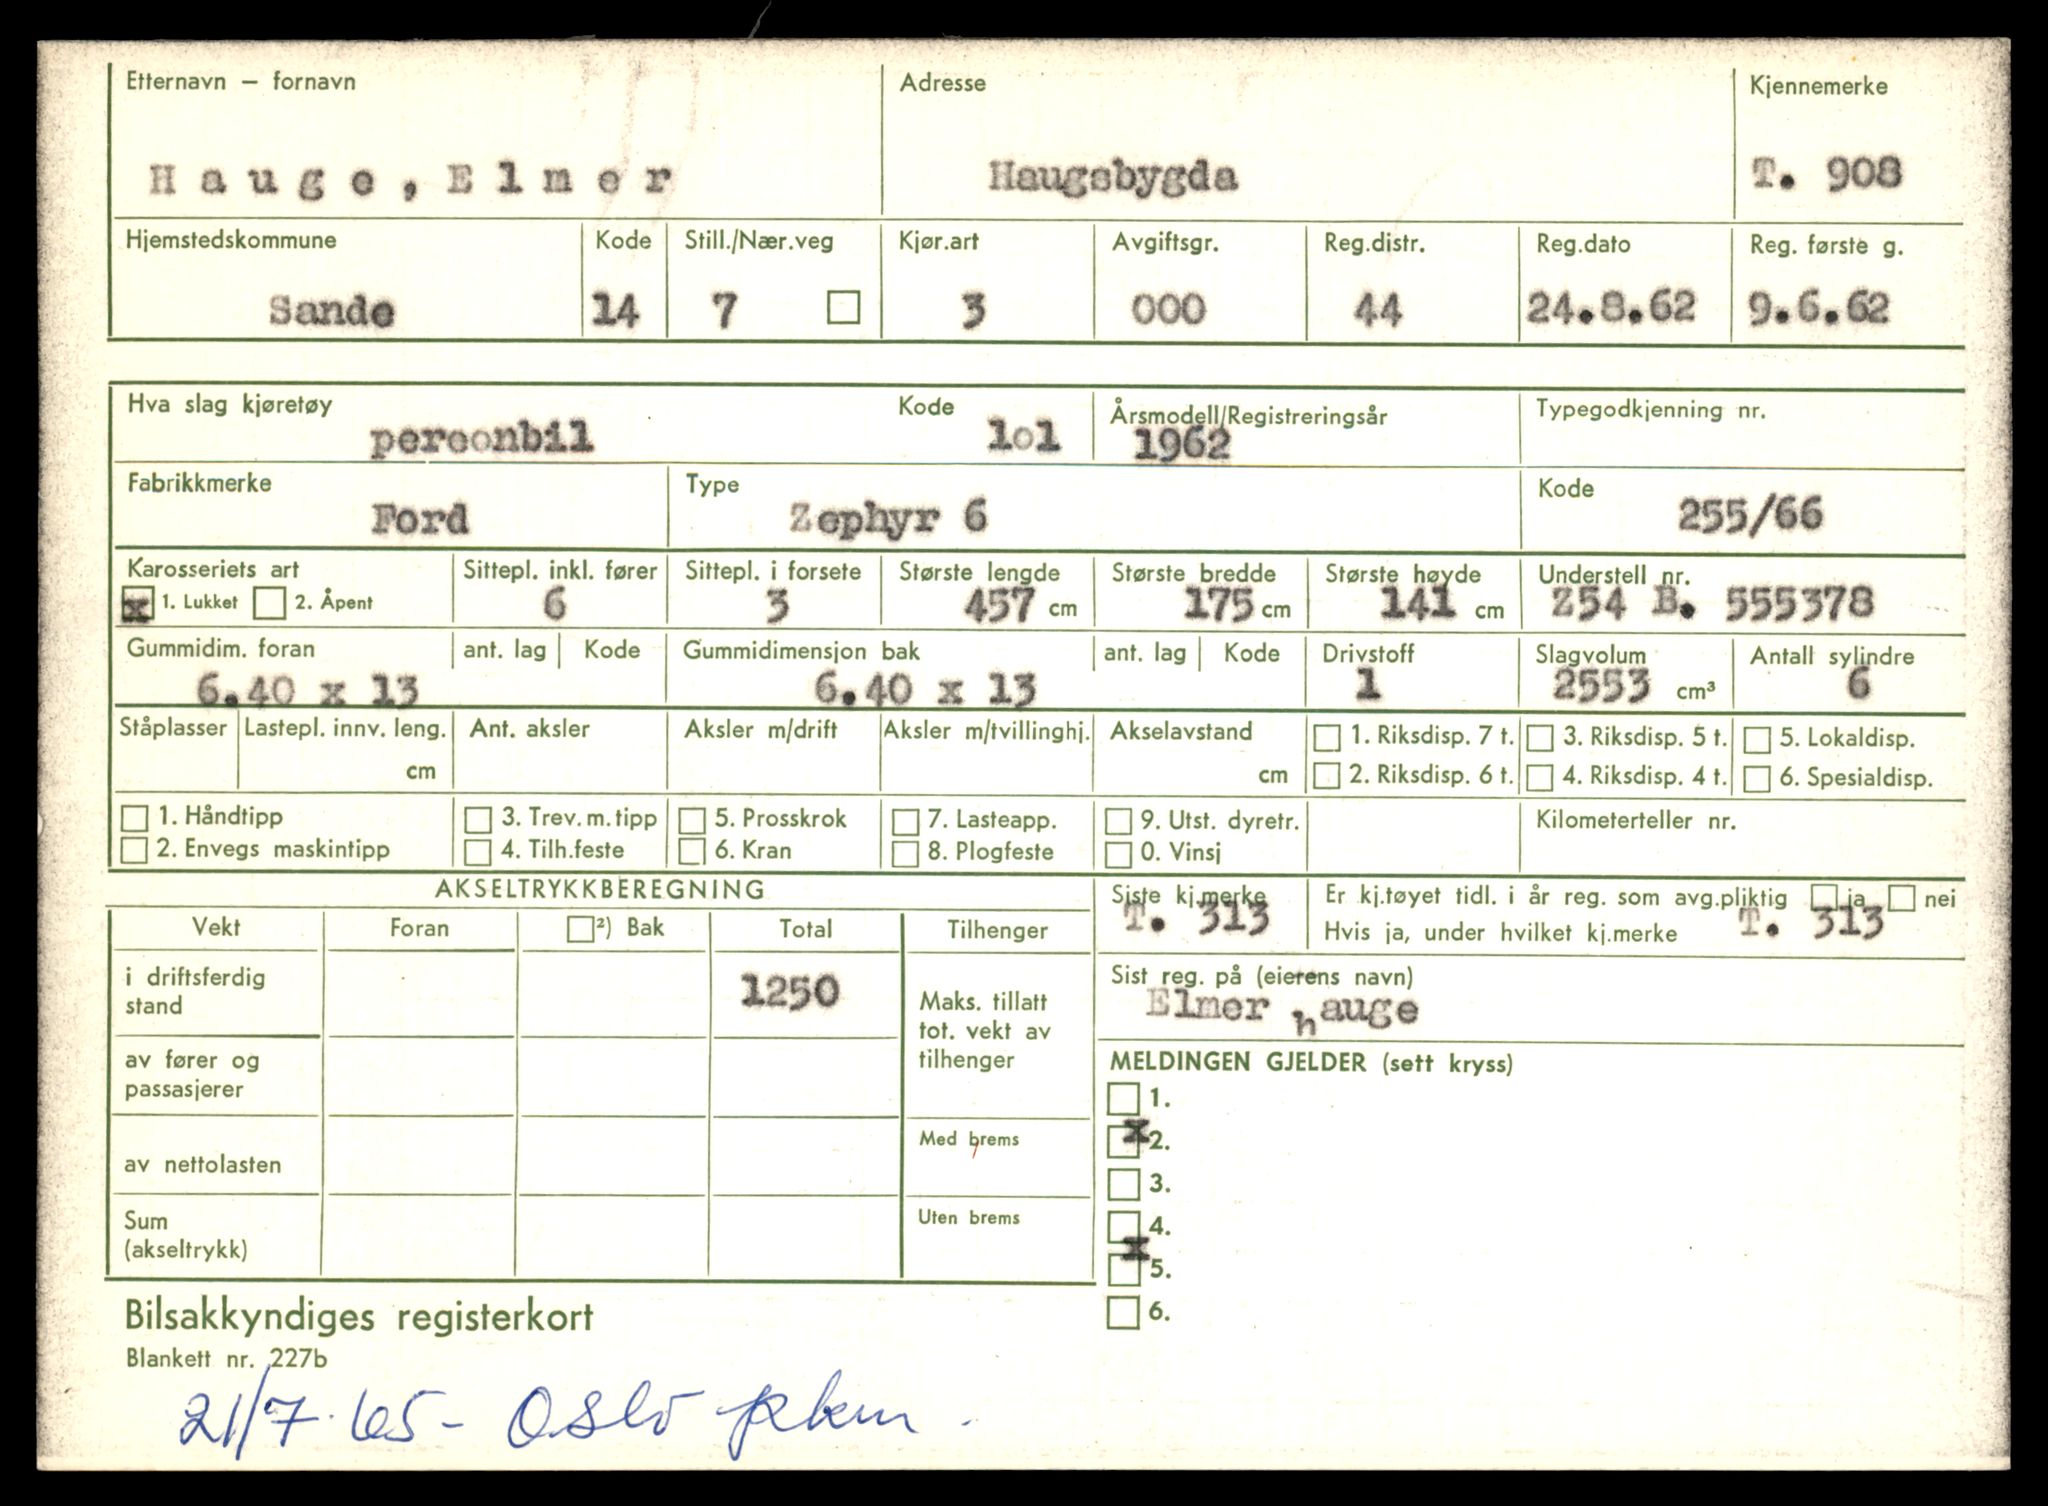 Etternavn — fornavn Adresse Kjennemerke
Hauge, Elmer Haugsbygda T. 908
Hjemstedskommune Kode Still./Nær.veg Kjør.art Avgiftsgr. Reg.distr. Reg.dato Reg. første g.
Sande 14 7 3 000 44 24.8.62 9.6.62
Hva slag kjøretøy Kode Årsmodell/Registreringsår Typegodkjenning nr.
personbil 1o1 1962
Fabrikkmerke Type Kode
Ford Zephyr 6 255/66
Karosseriets art Sittepl. inkl. fører Sittepl. i forsete Største lengde Største bredde Største høyde Understell nr.
x 1. Lukket 2. Åpent 6 3 457 cm 175 cm 141 cm Z54 B. 555378
Gummidim. foran ant. lag Kode Gummidimensjon bak ant. lag Kode Drivstoff Slagvolum Antall sylindre
6.40 x 13 6.40 x 13 1 2553 cm³ 6
Ståplasser Lastepl. innv. leng. Ant. aksler Aksler m/drift Aksler m/tvillinghj. Akselavstand 1. Riksdisp. 7 t. 3. Riksdisp. 5 t. 5. Lokaldisp.
cm cm 2. Riksdisp. 6 t. 4. Riksdisp. 4 t. 6. Spesialdisp.
1. Håndtipp 3. Trev. m. tipp 5. Prosskrok 7. Lasteapp. 9. Utst. dyretr. Kilometerteller nr.
2. Envegs maskintipp 4. Tilh.feste 6. Kran 8. Plogfeste 0. Vinsj
AKSELTRYKKBEREGNING Siste kj.merke Er kj.tøyet tidl. i år reg. som avg.pliktig ja nei
T. 313 Hvis ja, under hvilket kj.merke T. 313
Vekt Foran ²) Bak Total Tilhenger
i driftsferdig stand 1250 Maks. tillatt tot. vekt av tilhenger
Sist reg. på (eierens navn)
Elmer hauge
av fører og passasjerer
MELDINGEN GJELDER (sett kryss)
1.
x 2.
Med brems
av nettolasten
3.
4.
Sum (akseltrykk) Uten brems
x 5.
6.
Bilsakkyndiges registerkort
Blankett nr. 227b
21/7.65 - Oslo